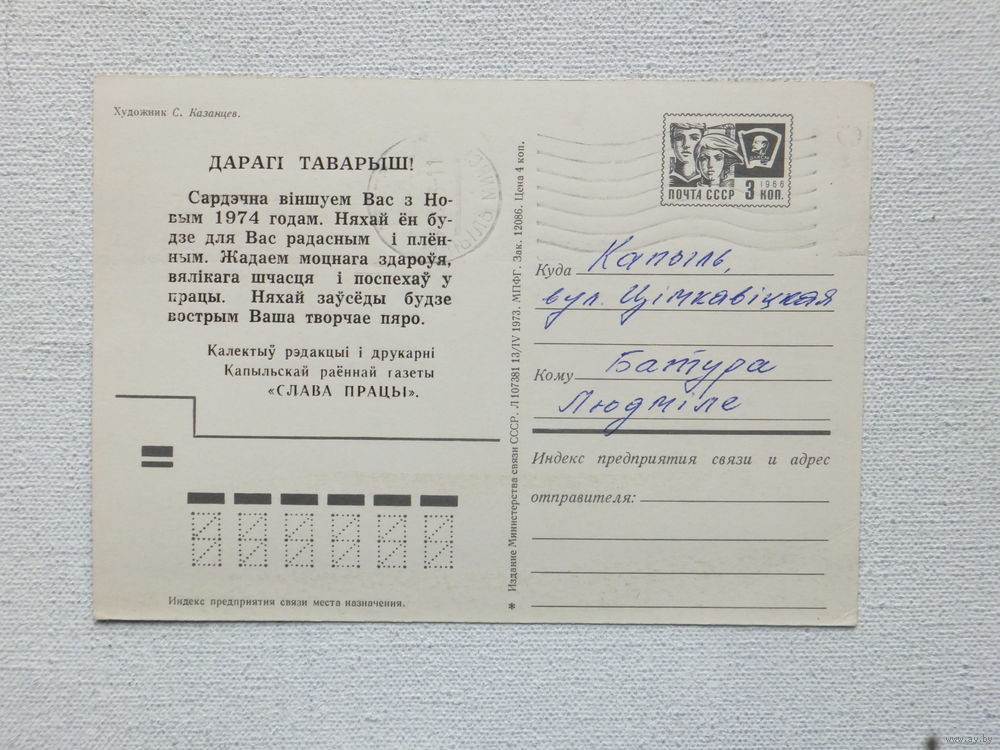 Художник С. Казанцев.
ДАРАГІ ТАВАРЫШ!
Сардэчна віншуем Вас з Но-
вым 1974 годам. Няхай ён бу-
дзе для Вас радасным і плён-
ным. Жадаем моцнага здароўя,
вялікага шчасця і поспехаў у
працы. Няхай заўсёды будзе
вострым Ваша творчае пяро.
Калектыў рэдакцыі і друкарні
Капыльскай раённай газеты
«СЛАВА ПРАЦЫ».
Индекс предприятия связи места назначения.
* Издание Министерства связи СССР. Л 107381 13/IV 1973. МПФГ. Зак. 12086. Цена 4 коп.
1966
ПОЧТА СССР 3 КОП.
Куда Капыль,
вул. Цімкавіцкая
Кому Батура
Людміле
Индекс предприятия связи и адрес
отправителя:
www.ay.by